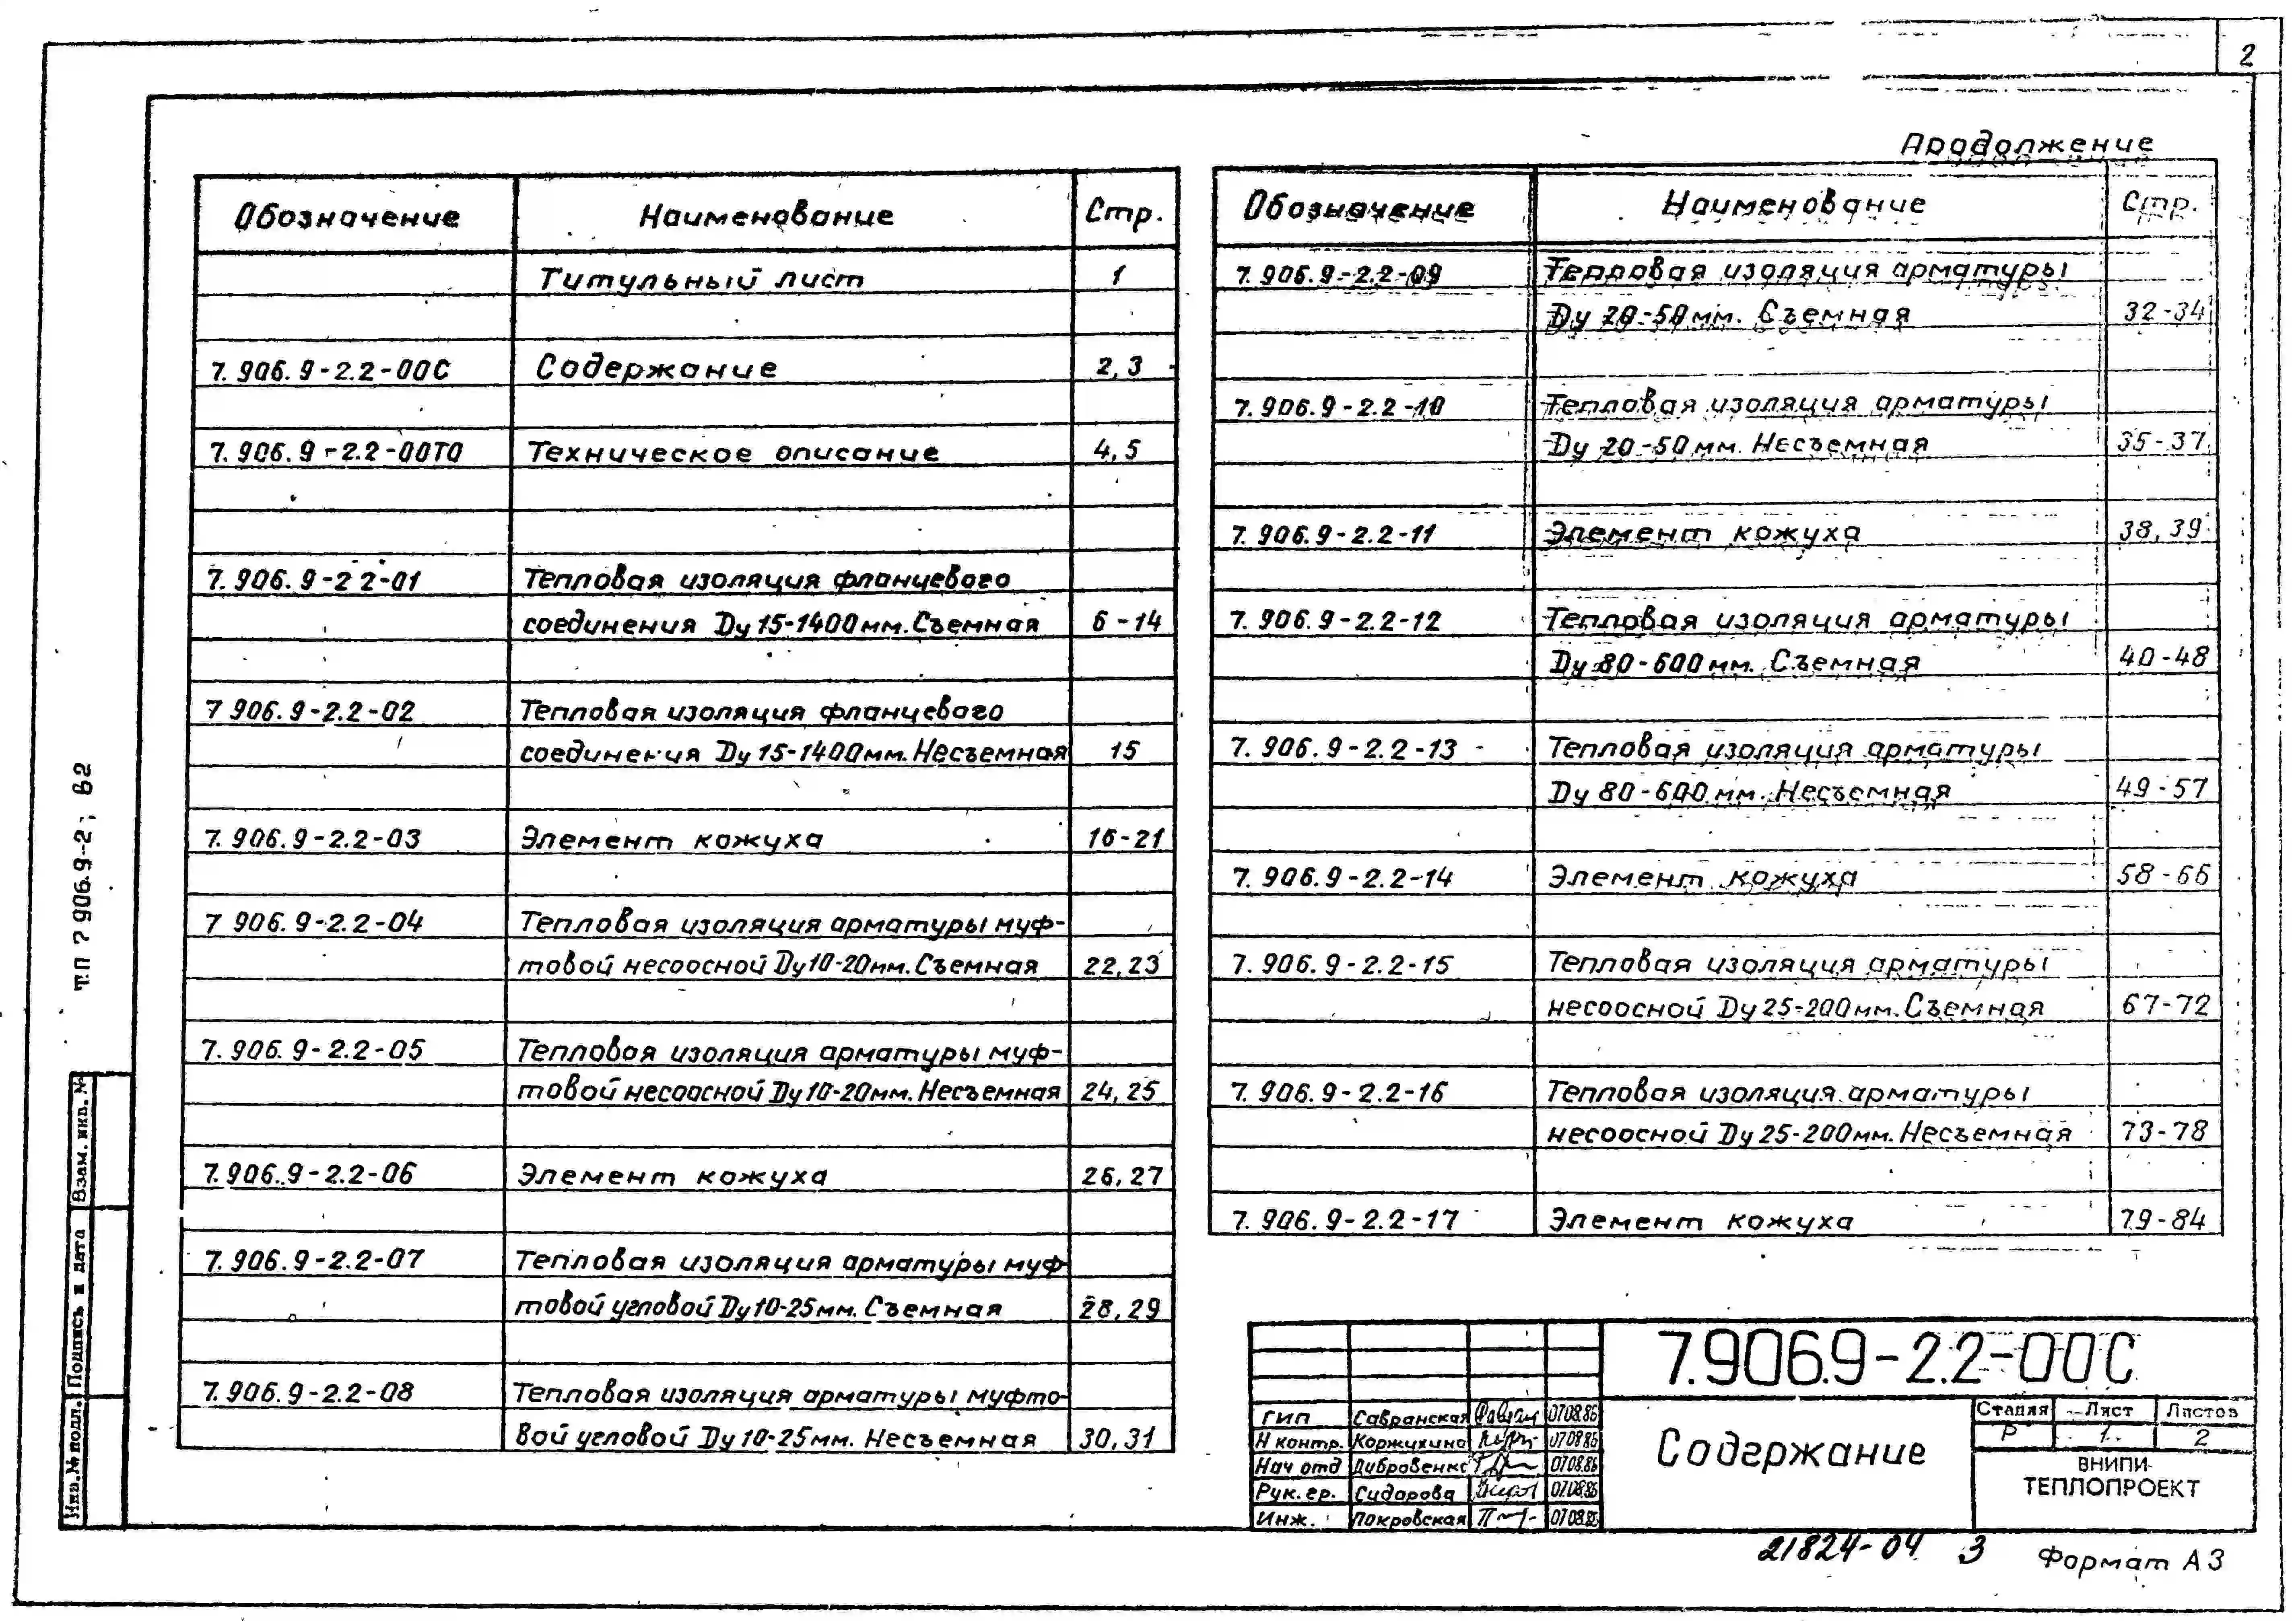 2
Обозначение Наименование Стр.
Титульный лист 1
7.906.9-2.2-00С Содержание 2,3
7.906.9-2.2-00ТО Техническое описание 4,5
7.906.9-2 2-01 Тепловая изоляция фланцевого
соединения Dу 15-1400мм. Съемная 6-14
7 906.9-2.2-02 Тепловая изоляция фланцевого
соединения Dу 15-1400мм. Несъемная 15
7.906.9-2.2-03 Элемент кожуха 16-21
7 906.9-2.2-04 Тепловая изоляция арматуры муф-
товой несоосной Dу 10-20мм. Съемная 22,23
7.906.9-2.2-05 Тепловая изоляция арматуры муф-
товой несоосной Dу 10-20мм. Несъемная 24,25
7.906.9-2.2-06 Элемент кожуха 26,27
7.906.9-2.2-07 Тепловая изоляция арматуры муф-
товой угловой Dу 10-25мм. Съемная 28,29
7.906.9-2.2-08 Тепловая изоляция арматуры муфто-
вой угловой Dу 10-25мм. Несъемная 30,31
Продолжение
Обозначение Наименование Стр.
7.906.9-2.2-09 Тепловая изоляция арматуры
Dу 20-50мм. Съемная 32-34
7.906.9-2.2-10 Тепловая изоляция арматуры
Dу 20-50мм. Несъемная 35-37
7.906.9-2.2-11 Элемент кожуха 38,39
7.906.9-2.2-12 Тепловая изоляция арматуры
Dу 80-600мм. Съемная 40-48
7.906.9-2.2-13 Тепловая изоляция арматуры
Dу 80-600 мм. Несъемная 49-57
7.906.9-2.2-14 Элемент кожуха 58-66
7.906.9-2.2-15 Тепловая изоляция арматуры
несоосной Dу 25-200мм. Съемная 67-72
7.906.9-2.2-16 Тепловая изоляция арматуры
несоосной Dу 25-200мм. Несъемная 73-78
7.906.9-2.2-17 Элемент кожуха 79-84
Т.П 7 906.9-2; В2
Взам. инв. №
Подпись и дата
Инв. № подл.
7.906.9-2.2-00С
ГИП Савранская 07.08.86
Н контр. Коржухина 07.08.86
Нач отд Дубровенко 07.08.86
Рук. гр. Сидорова 07.08.86
Инж. Покровская 07.08.86
Содержание
Стадия Лист Листов
Р 1 2
ВНИПИ-
ТЕПЛОПРОЕКТ
21824-04 3
Формат А3